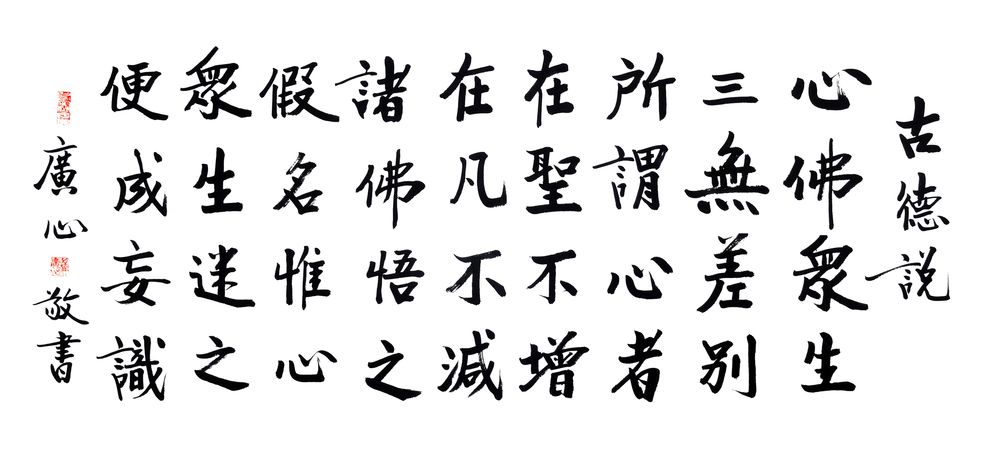 古德説
心佛衆生
三無差别
所謂心者
在聖不增
在凡不減
諸佛悟之
假名惟心
衆生迷之
便成妄識
廣心敬書